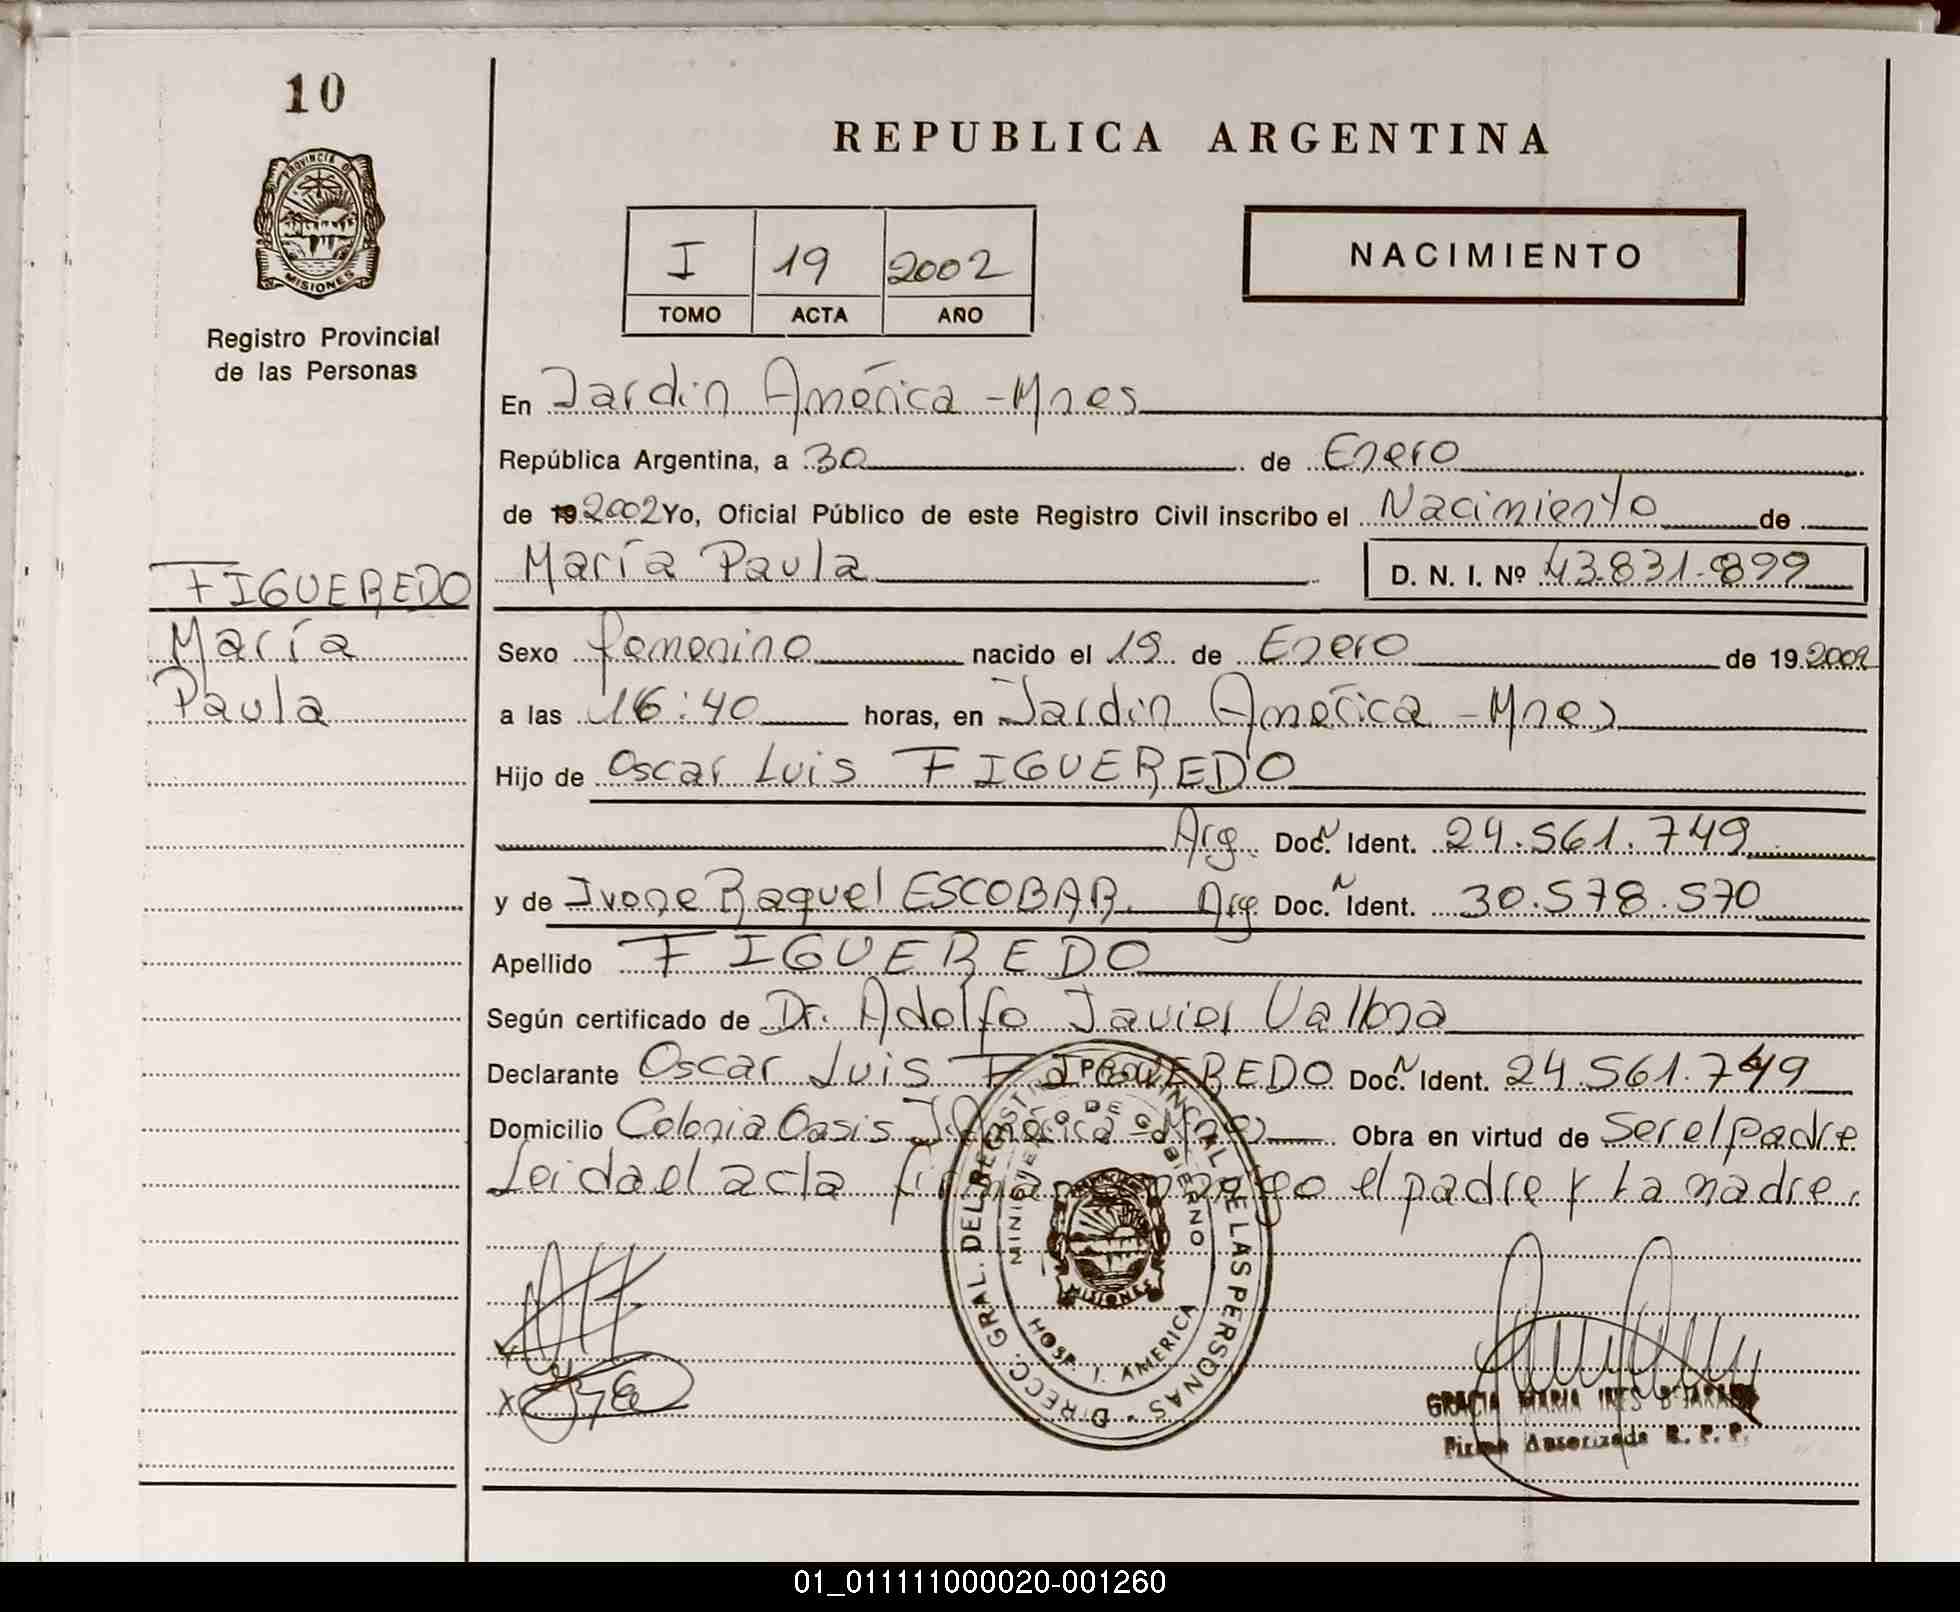 10
PROVINCIA DE
MISIONES
Registro Provincial
de las Personas
FIGUEREDO
María
Paula
REPUBLICA ARGENTINA
I 19 2002
TOMO ACTA AÑO
NACIMIENTO
En Jardin América - Mnes
República Argentina, a 30 de Enero
de 19 2002 Yo, Oficial Público de este Registro Civil inscribo el Nacimiento de
María Paula D. N. I. Nº 43.831.899
Sexo femenino nacido el 19 de Enero de 19 2002
a las 16:40 horas, en Jardin América - Mnes
Hijo de Oscar Luis FIGUEREDO
Arg. Doc. N Ident. 24.561.749
y de Ivone Raquel ESCOBAR. Arg. Doc. N Ident. 30.578.570
Apellido FIGUEREDO
Según certificado de Dr. Adolfo Javier
Declarante Oscar Luis FIGUEREDO Doc. N Ident. 24.561.749
Domicilio Colonia Oasis J. América - Mnes Obra en virtud de Ser el padre
Leida el acta firman conmigo el padre y la madre.
DIRECC. GRAL. DEL REGISTRO PROVINCIAL DE LAS PERSONAS
MINISTERIO DE GOBIERNO
MISIONES
HOSP. J. AMERICA
GRACIA MARIA INES BEJARANO
Firma Autorizada R. P. P.
01_011111000020-001260